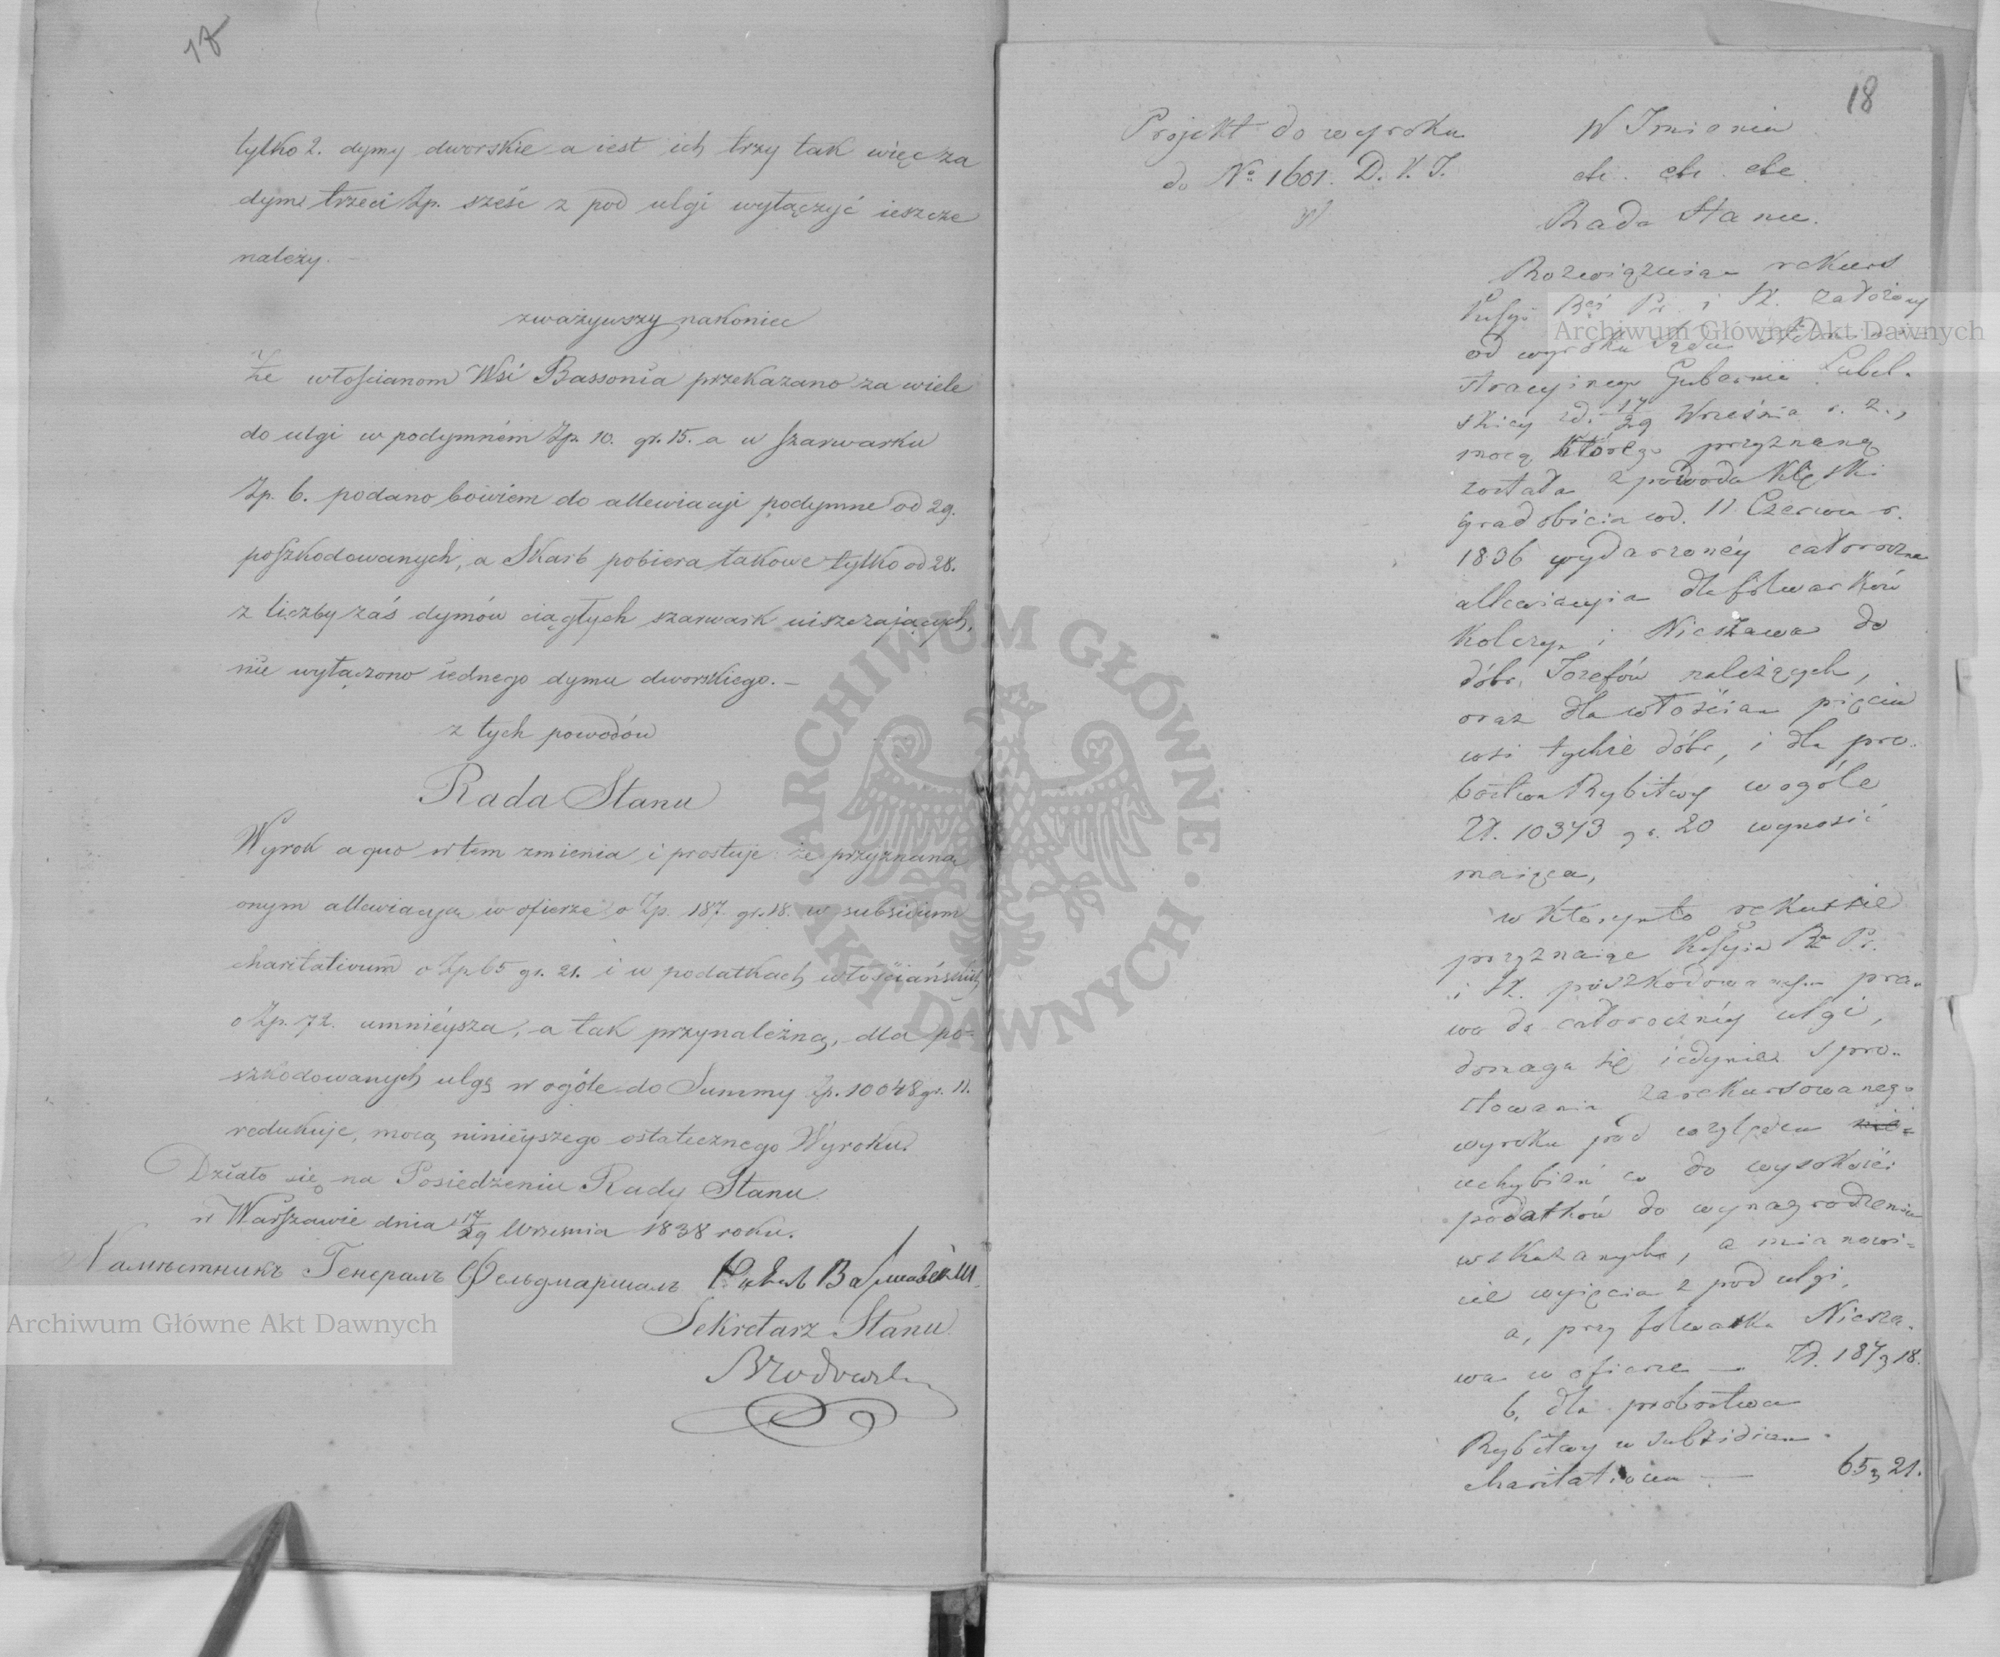 17
tylko 2. dymy dworskie a iest ich trzy tak więc za
dym trzeci Zp. sześć z pod ulgi wyłączyć ieszcze
należy. —
zważywszy nakoniec
Że włościanom Wsi Bassonia przekazano za wiele
do ulgi w podymném Zp. 10. gr. 15. a w szarwarku
Zp. 6. podano bowiem do allewiacyi podymne od 29.
poszkodowanych, a Skarb pobiera takowe tylko od 28.
z liczby zaś dymów ciągłych szarwark uiszczających,
nie wyłączono iednego dymu dworskiego. —
z tych powodów
Rada Stanu
Wyrok a quo w tem zmienia i prostuje: że przyznaną
onym allewiacyą w ofierze o Zp. 187. gr. 18. w subsidium
charitativum o Zp 65 gr. 21. i w podatkach włościańskich
o Zp. 72. umniéysza, a tak przynależną, dla po-
szkodowanych ulgę w ogóle do Summy Zp. 10048 gr. 11.
redukuje, mocą niniéyszego ostatecznego Wyroku.
Działo się na Posiedzeniu Rady Stanu
w Warszawie dnia 17/29 Września 1838 roku.
Намѣстникъ Генералъ Фельдмаршалъ
Sekretarz Stanu
Brodowski
18
Projekt do wyroku
do No 1601. D. K. J.
W Imieniu
etc. etc. etc.
Rada Stanu.
Rozwiązuiąc rekurs
Kassyi Rząd. Pr. i Sk. założony
od wyroku Sądu Admini-
stracyjnego Gubernii Lubel-
skiey z d. 17/29 Września r. z.,
mocą którego przyznaną
została z powodu klęski
gradobicia w d. 11 Czerwca r.
1836 wydarzonéy całoroczna
allewiacyia dla folwarków
Kolczyn i Nieszawa do
dóbr Józefów należących,
oraz dla włościan pięciu
wsi tychże dóbr, i dla pro-
bostwa Rybitwy w ogóle
Zł. 10373 gr. 20 wynosić
maiąca,
w którym to rekursie
przyznaiąc Kassyia Rz. Pr.
i Sk. poszkodowanym pra-
wo do całorocznéy ulgi,
domaga się iedynie spro-
stowania zarekursowanego
wyroku pod względem
uchybień co do wysokości
podatków do wynagrodzenia
wskazanych, a mianowi-
cie wyięcia z pod ulgi,
a, przy folwarku Niesza-
wa w ofierze — Zł. 187 g 18.
b, dla probostwa
Rybitwy w subsidium
charitativum — 65 g 21.
Archiwum Główne Akt Dawnych
Archiwum Główne Akt Dawnych
ARCHIWUM GŁÓWNE · AKT DAWNYCH ·